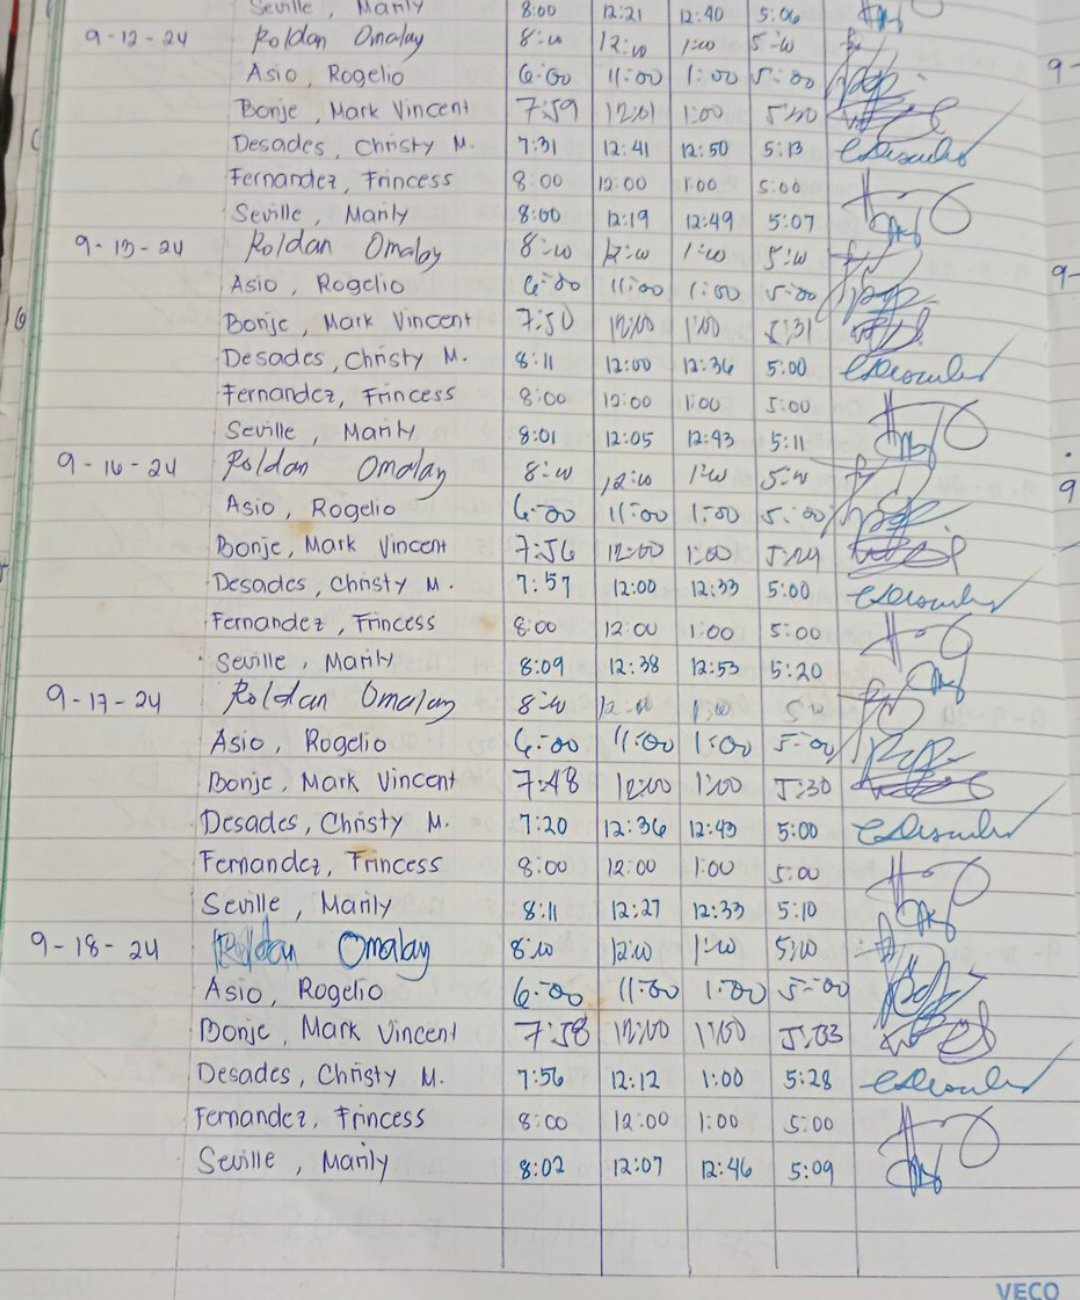 Seville, Marily 8:00 12:21 12:40 5:06
9-12-24 Roldan Omalay 8:00 12:00 1:00 5:00
Asio, Rogelio 6:00 11:00 1:00 5:00
Bonje, Mark Vincent 7:59 12:01 1:00
Desades, Christy M. 7:31 12:41 12:50 5:13
Fernandez, Frincess 8:00 12:00 1:00 5:00
Seville, Marily 8:00 12:19 12:49 5:07
9-13-24 Roldan Omalay 8:00 12:00 1:00 5:00
Asio, Rogelio 6:00 11:00 1:00 5:00
Bonje, Mark Vincent 7:50 12:00 1:00 5:31
Desades, Christy M. 8:11 12:00 12:36 5:00
Fernandez, Frincess 8:00 12:00 1:00 5:00
Seville, Marily 8:01 12:05 12:43 5:11
9-16-24 Roldan Omalay 8:00 12:00 1:00 5:00
Asio, Rogelio 6:00 11:00 1:00 5:00
Bonje, Mark Vincent 7:56 12:00 1:00 5:24
Desades, Christy M. 7:57 12:00 12:33 5:00
Fernandez, Frincess 8:00 12:00 1:00 5:00
Seville, Marily 8:09 12:38 12:53 5:20
9-17-24 Roldan Omalay 8:00 12:00 1:00 5:00
Asio, Rogelio 6:00 11:00 1:00 5:00
Bonje, Mark Vincent 7:48 12:00 1:00 5:30
Desades, Christy M. 7:20 12:36 12:43 5:00
Fernandez, Frincess 8:00 12:00 1:00 5:00
Seville, Marily 8:11 12:27 12:33 5:10
9-18-24 Roldan Omalay 8:00 12:00 1:00 5:00
Asio, Rogelio 6:00 11:00 1:00 5:00
Bonje, Mark Vincent 7:58 12:00 1:00 5:33
Desades, Christy M. 7:56 12:12 1:00 5:28
Fernandez, Frincess 8:00 12:00 1:00 5:00
Seville, Marily 8:02 12:07 12:46 5:09
VECO